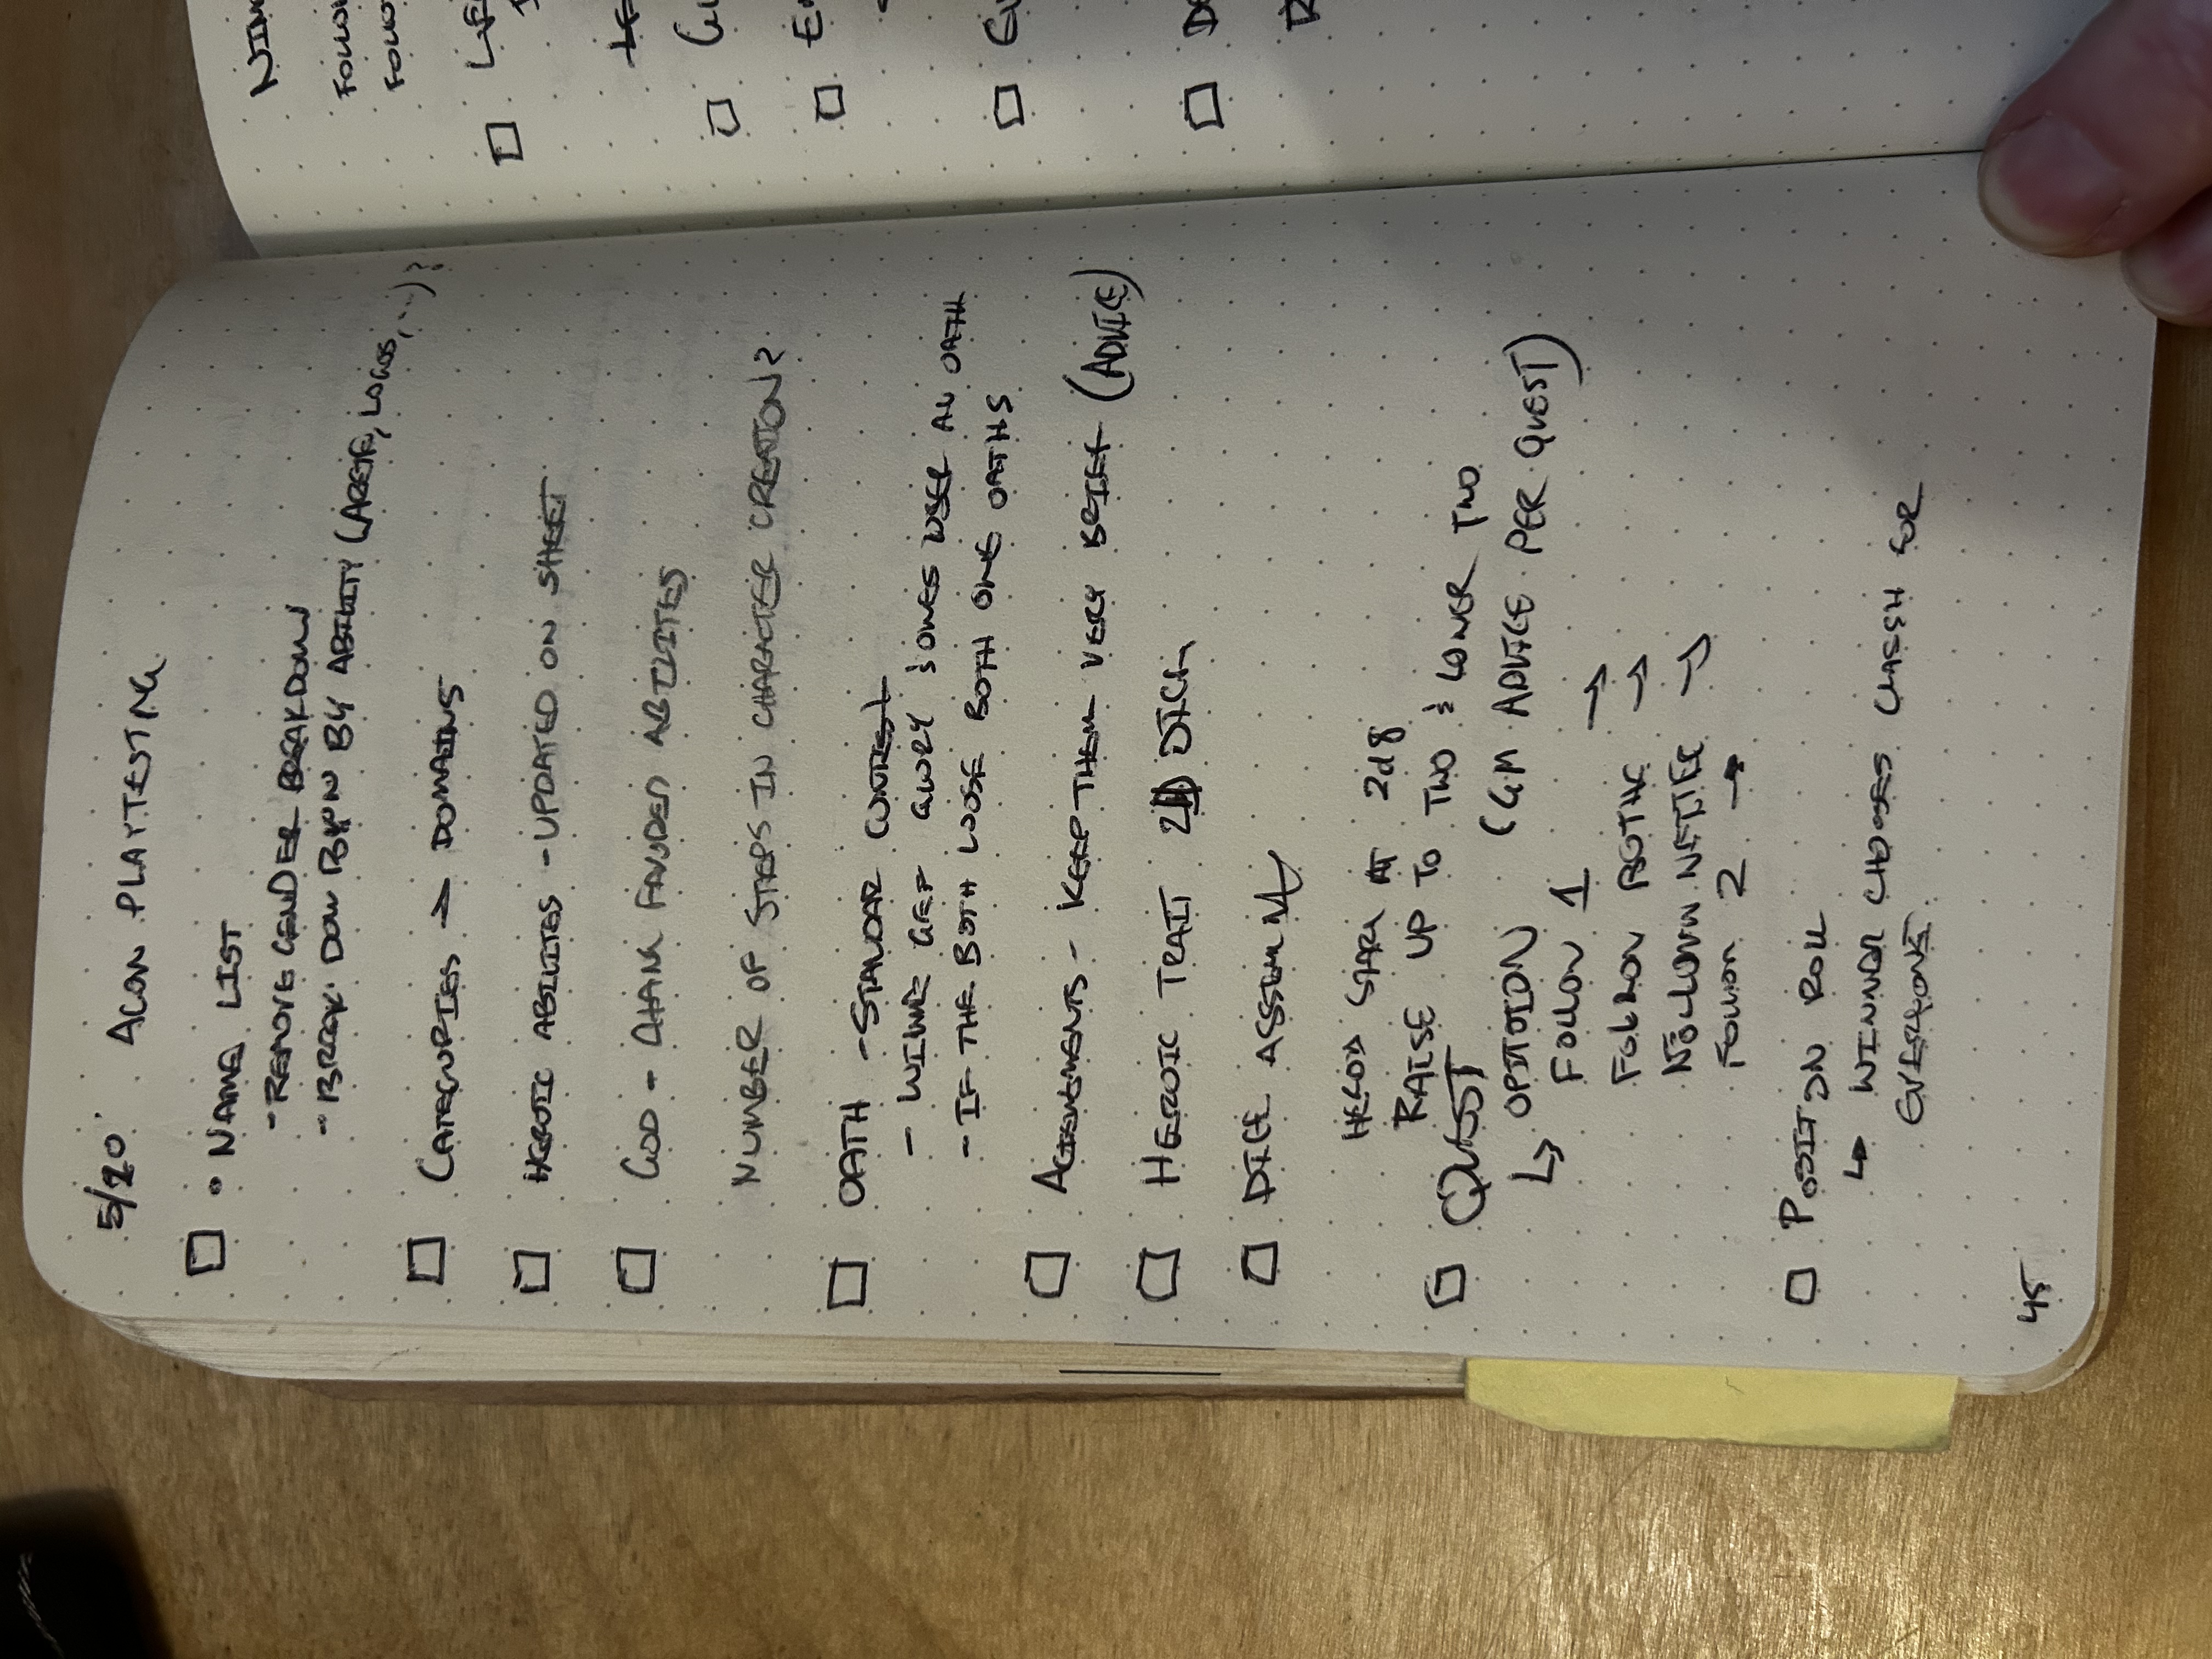 5/20 AGON PLAYTESTING
☐ • NAME LIST
- REMOVE GENDER BREAKDOWN
- BREAK DOWN BY ABILITY (ARETE, LOGOS, ...)?
☐ CATEGORIES → DOMAINS
☐ HEROIC ABILITES - UPDATED ON SHEET
☐ GOD - CHANG FAVORED ABILITIES
NUMBER OF STEPS IN CHARACTER CREATION?
☐ OATH - STANDAR CONTEST
- WINNE GET GLORY & OWES LOSER AN OATH
- IF THE BOTH LOOSE BOTH OWE OATHS
☐ AGREEMENTS - KEEP THEM VERY BRIEF (ADVICE)
☐ HEROIC TRAIT
☐ DICE
START AT 2d8
RAISE UP TO TWO & LOWER TWO
☐ QUEST (GM ADVICE PER QUEST)
↳ OPTOION
FOLLOW 1 →
FOLLOW BOTH →
FOLLOW NEITHE →
FOLLOW 2 →
☐ POSITON ROLL
↳ WINNDR CHOOSES CLASSH FOR
EVERYONE
45
NIM
FOLLOW
FOLLO
☐
☐
☐
☐
☐